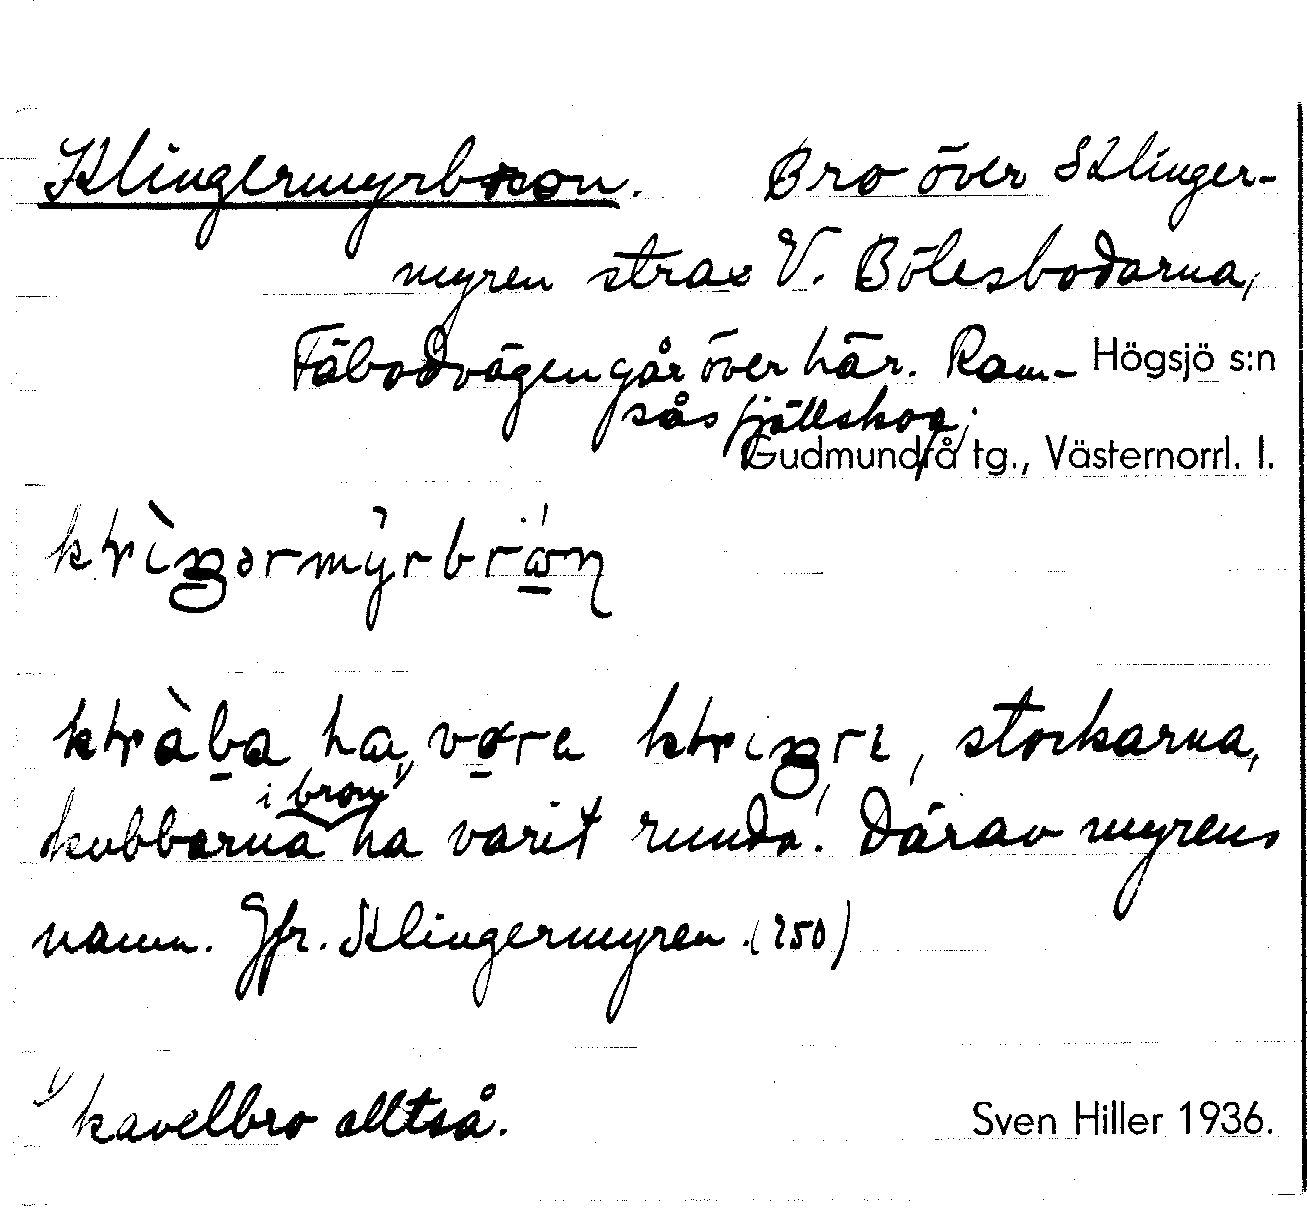 Klingermyrbron. Bro över Klinger-
myren strax V. Bölesbodarna,
Fäbodvägen går över här. Ram-
sås fjällskog.
Högsjö s:n
Gudmundrå tg., Västernorrl. l.
stockarna,
i bron¹⁾
kubbarna ha varit runda! Därav myrens
namn. Jfr. Klingermyren. (250)
¹⁾ kavelbro alltså.
Sven Hiller 1936.